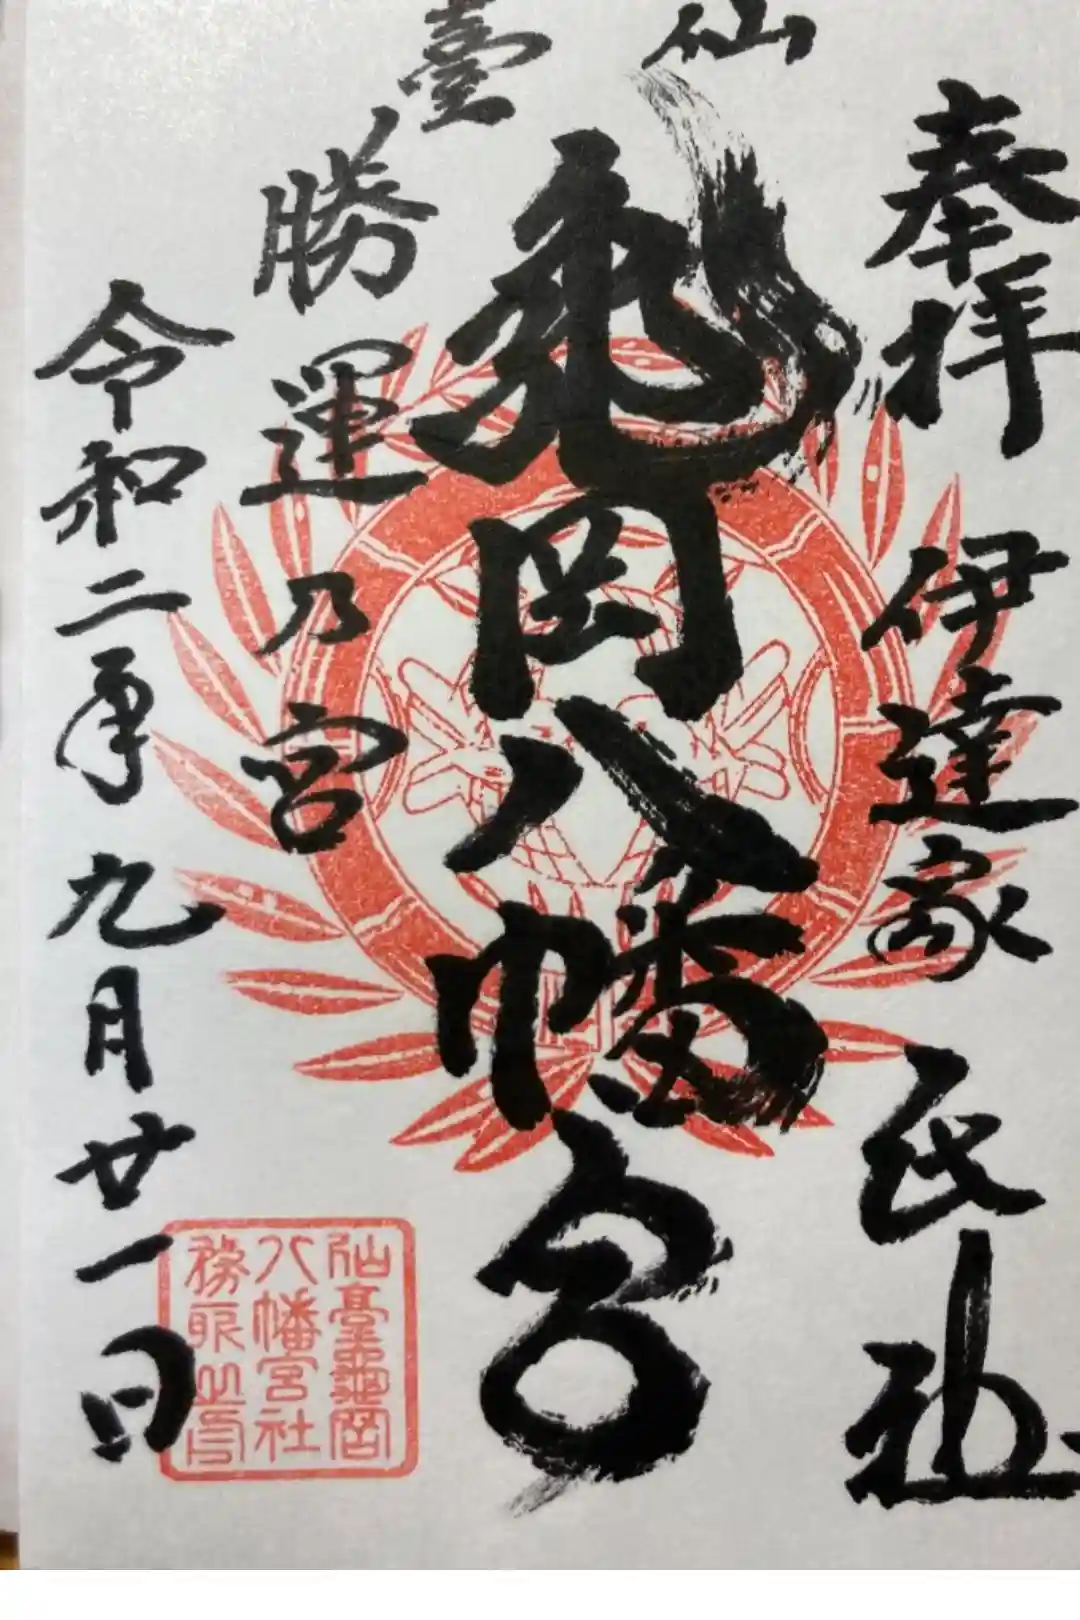 奉拝
伊達家氏社
仙臺
亀岡八幡宮
勝運乃宮
令和二年九月廿一日
仙臺龜岡
八幡宮社
務所之印